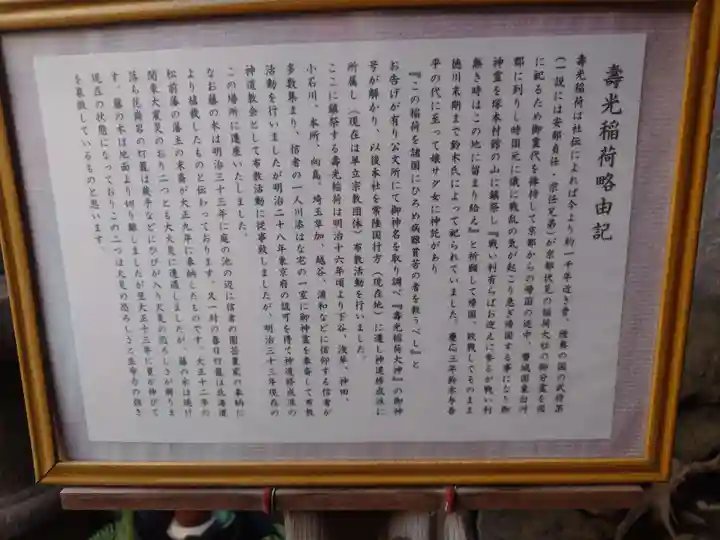 壽光稲荷略由記
壽光稲荷は社伝によれば今より約一千年近き昔、陸奥の国の武将某
(一説には安部貞任・宗任兄弟)が京都伏見の稲荷大社の御分霊を国
に祀るため御霊代を棒持して京都からの帰国の途中、磐城国東白河
郡に到りし時国元に俄に戦乱の気が起こり急ぎ帰国する事になり御
神霊を塚本村館の山に鎮祭し『戦い利有らばお迎えに参るが戦い利
無き時はこの地に留まり給え』と祈願して帰国、敗戦してそのまま
徳川末期まで鈴木氏によって祀られていました。慶応三年鈴木与吾
平の代に至って嬢サダ女に神託があり
『この稲荷を諸国にひろめ病難貧苦の者を救うべし』と
お告げが有り公文所にて御神名を取り調べ『壽光稲荷大神』の御神
号が解かり、以後本社を常陸国行方(現在地)に遷し神道修成派に
所属し(現在は単立宗教団体)布教活動を行いました。
ここに鎮祭する壽光稲荷は明治十六年頃より下谷、浅草、神田、
小石川、本所、向島、埼玉草加、越谷、浦和などに信仰する信者が
多数集まり、信者の一人川添はな宅の一室に御神霊を奉斎して布教
活動を行いましたが明治二十八年東京府の認可を得て神道修成派の
神道教会として布教活動に従事致しましたが、明治三十三年現在の
この場所に遷座いたしました。
なお藤の木は明治三十三年に庭の池の辺に信者の園芸農家の奉納に
より植栽したものと伝わっております。又一対の春日灯籠は北海道
松前藩の藩主の末裔が大正九年に奉納したものです。大正十二年の
関東大震災のおり二つとも大火災に遭遇しましたが、藤の木は焼け
落ち花崗岩の灯籠は幾年などにひびが入り火災の恐ろしさが解りま
す。藤の木は地面より切り離しましたが翌大正十三年に芽が伸びて
現在の状態になっておりこの二つは火災の恐ろしさと生命力の強さ
を象徴しているものと思います。